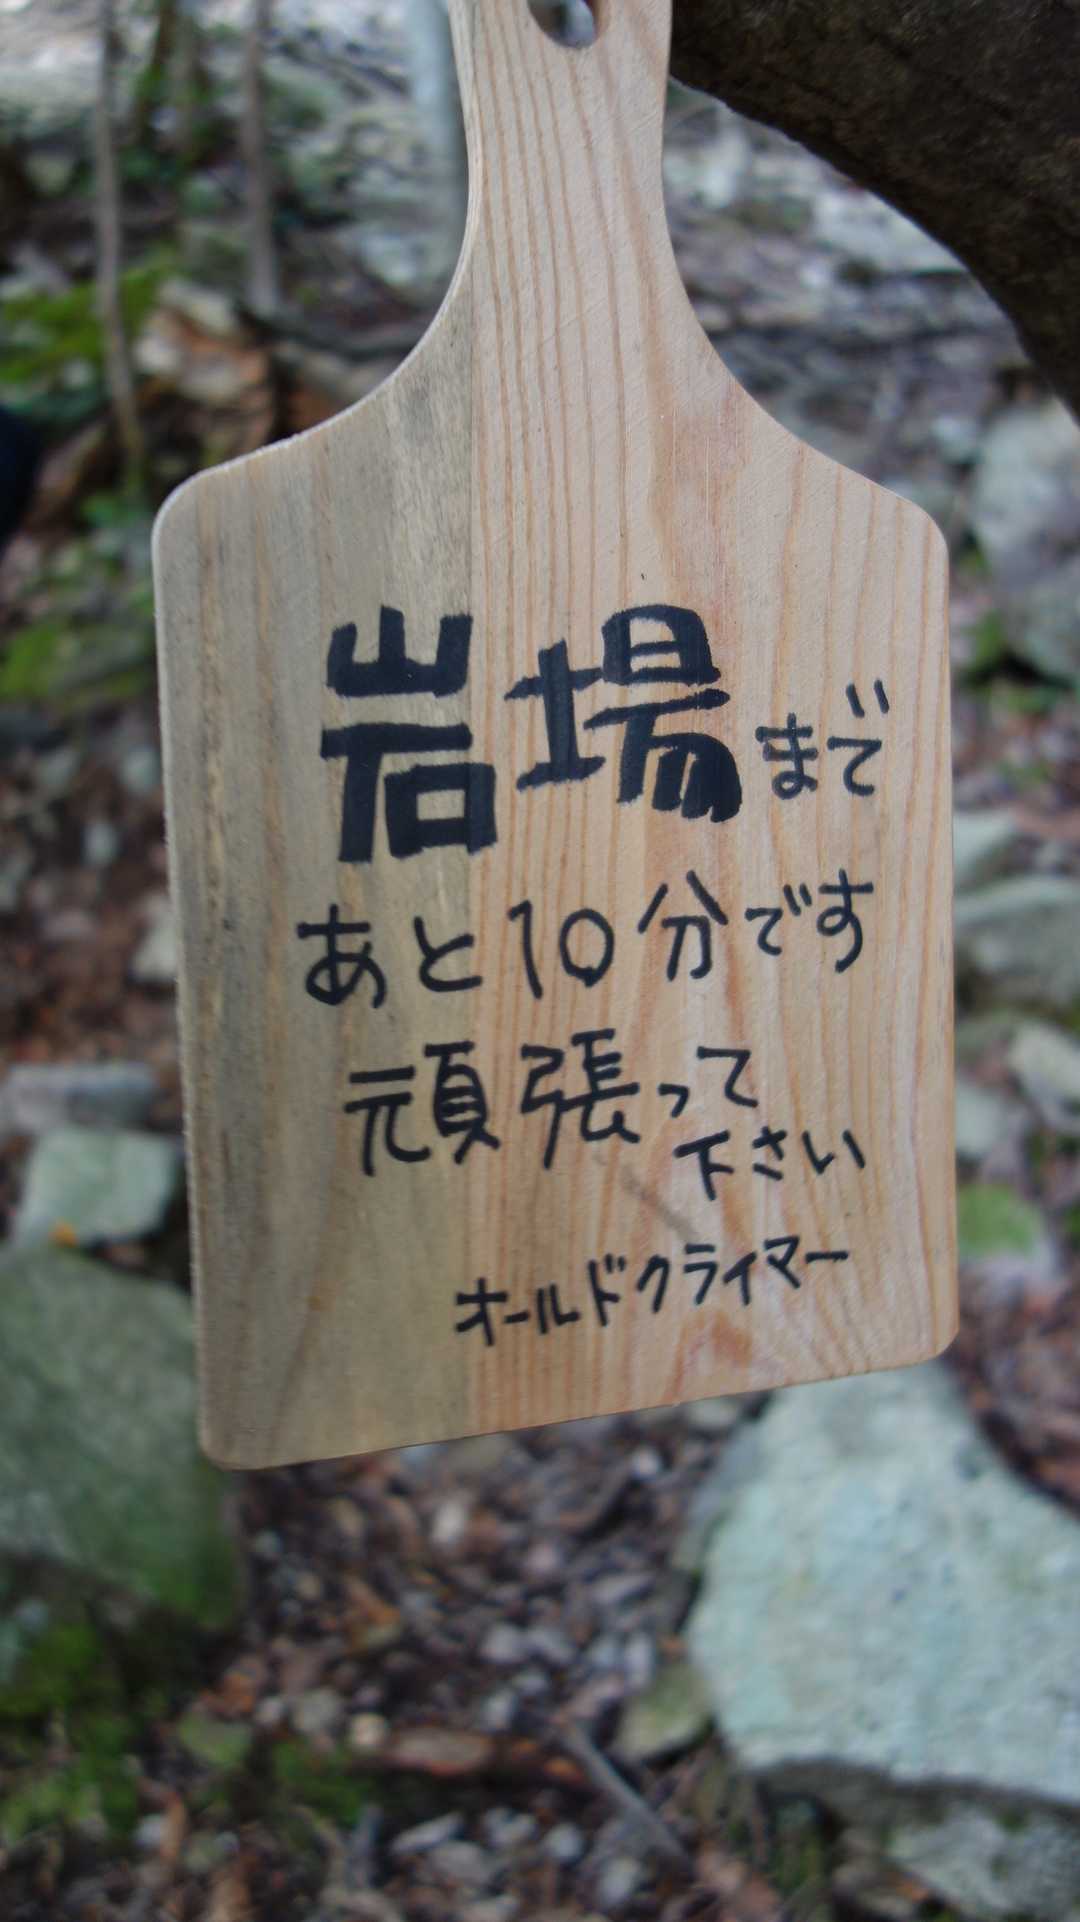 岩場まで
あと10分です
頑張って
下さい
オールドクライマー